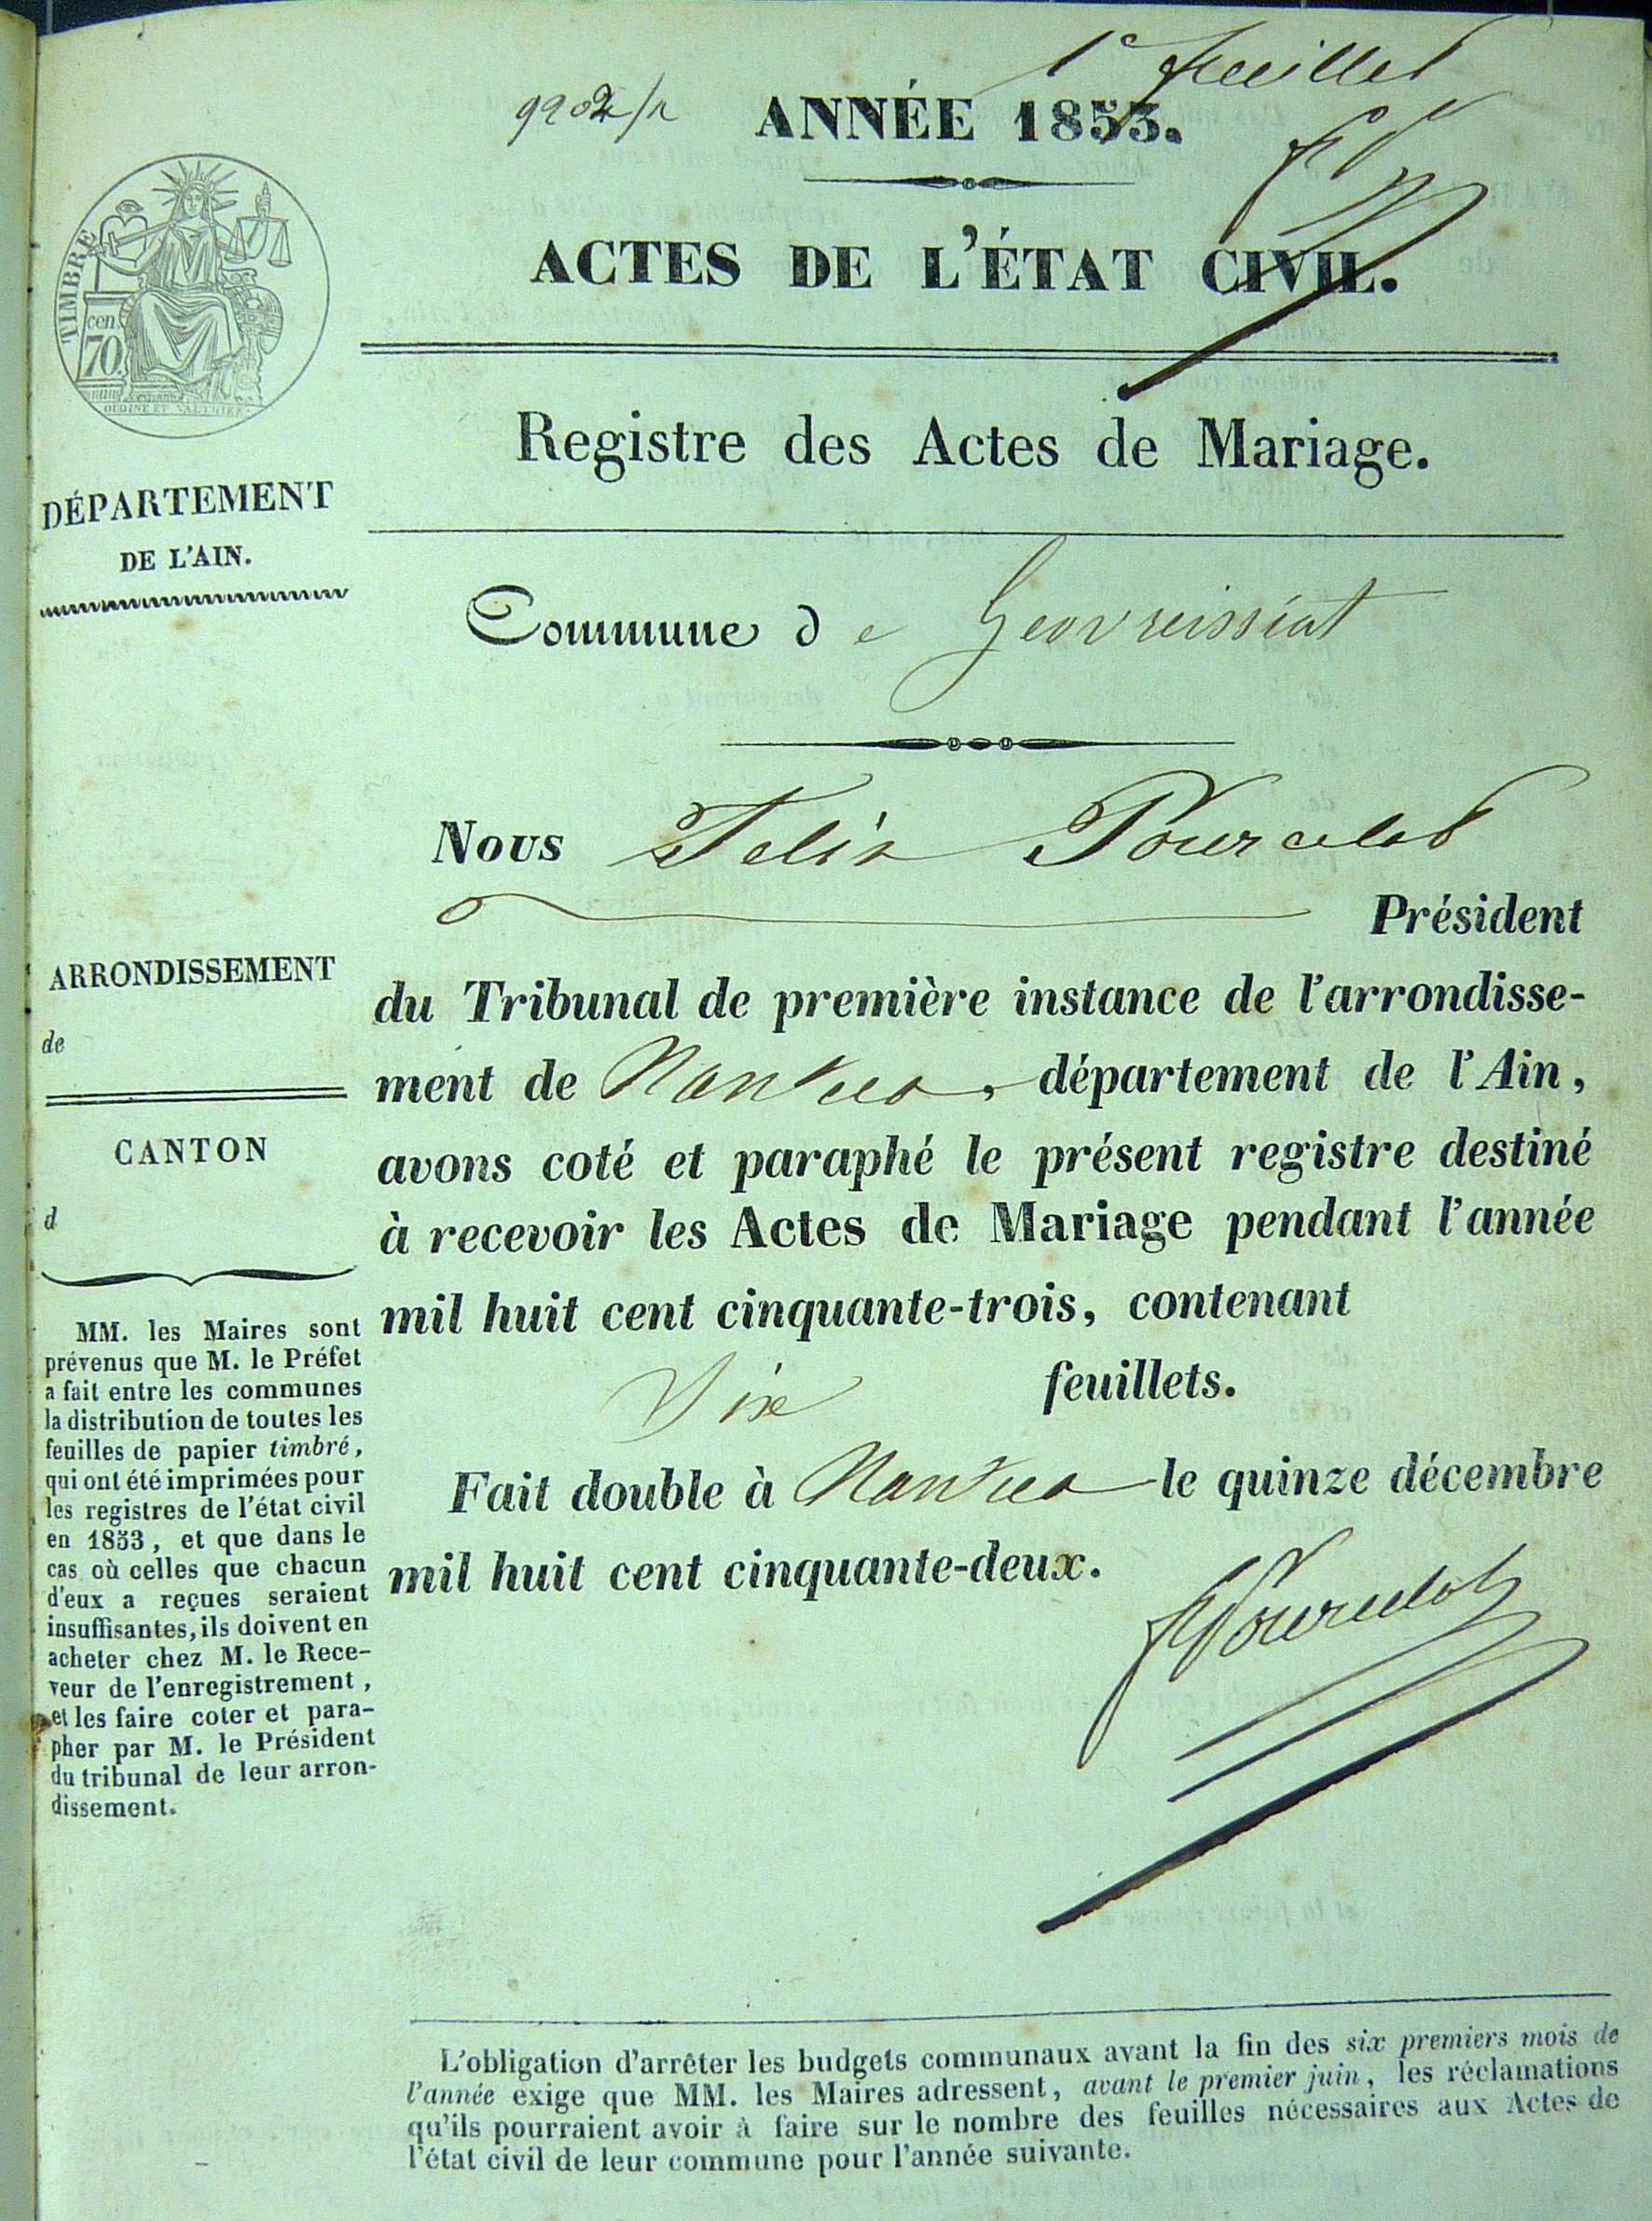 1er feuillet
ANNÉE 1853.
ACTES DE L'ÉTAT CIVIL.
TIMBRE
cen.
70
OUDINE ET VAUTHIER
Registre des Actes de Mariage.
DÉPARTEMENT
DE L'AIN.
Commune de Geovreissiat
Nous Felix Pourcelot
Président
du Tribunal de première instance de l'arrondisse-
ment de Nantua, département de l'Ain,
avons coté et paraphé le présent registre destiné
à recevoir les Actes de Mariage pendant l'année
mil huit cent cinquante-trois, contenant
feuillets.
Fait double à Nantua le quinze décembre
mil huit cent cinquante-deux.
FPourcelot
ARRONDISSEMENT
de
CANTON
d
MM. les Maires sont
prévenus que M. le Préfet
a fait entre les communes
la distribution de toutes les
feuilles de papier timbré,
qui ont été imprimées pour
les registres de l'état civil
en 1853, et que dans le
cas où celles que chacun
d'eux a reçues seraient
insuffisantes, ils doivent en
acheter chez M. le Rece-
veur de l'enregistrement,
et les faire coter et para-
pher par M. le Président
du tribunal de leur arron-
dissement.
L'obligation d'arrêter les budgets communaux avant la fin des six premiers mois de
l'année exige que MM. les Maires adressent, avant le premier juin, les réclamations
qu'ils pourraient avoir à faire sur le nombre des feuilles nécessaires aux Actes de
l'état civil de leur commune pour l'année suivante.